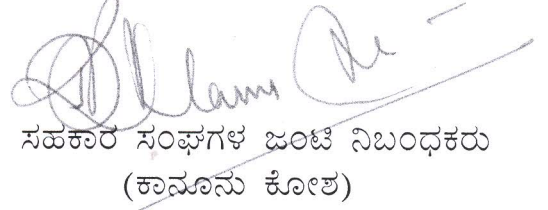 ಸಹಕಾರ ಸಂಘಗಳ ಜಂಟಿ ನಿಬಂಧಕರು
(ಕಾನೂನು ಕೋಶ)